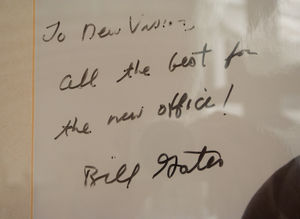 To New Vision,
all the best for
the new office!
Bill Gates